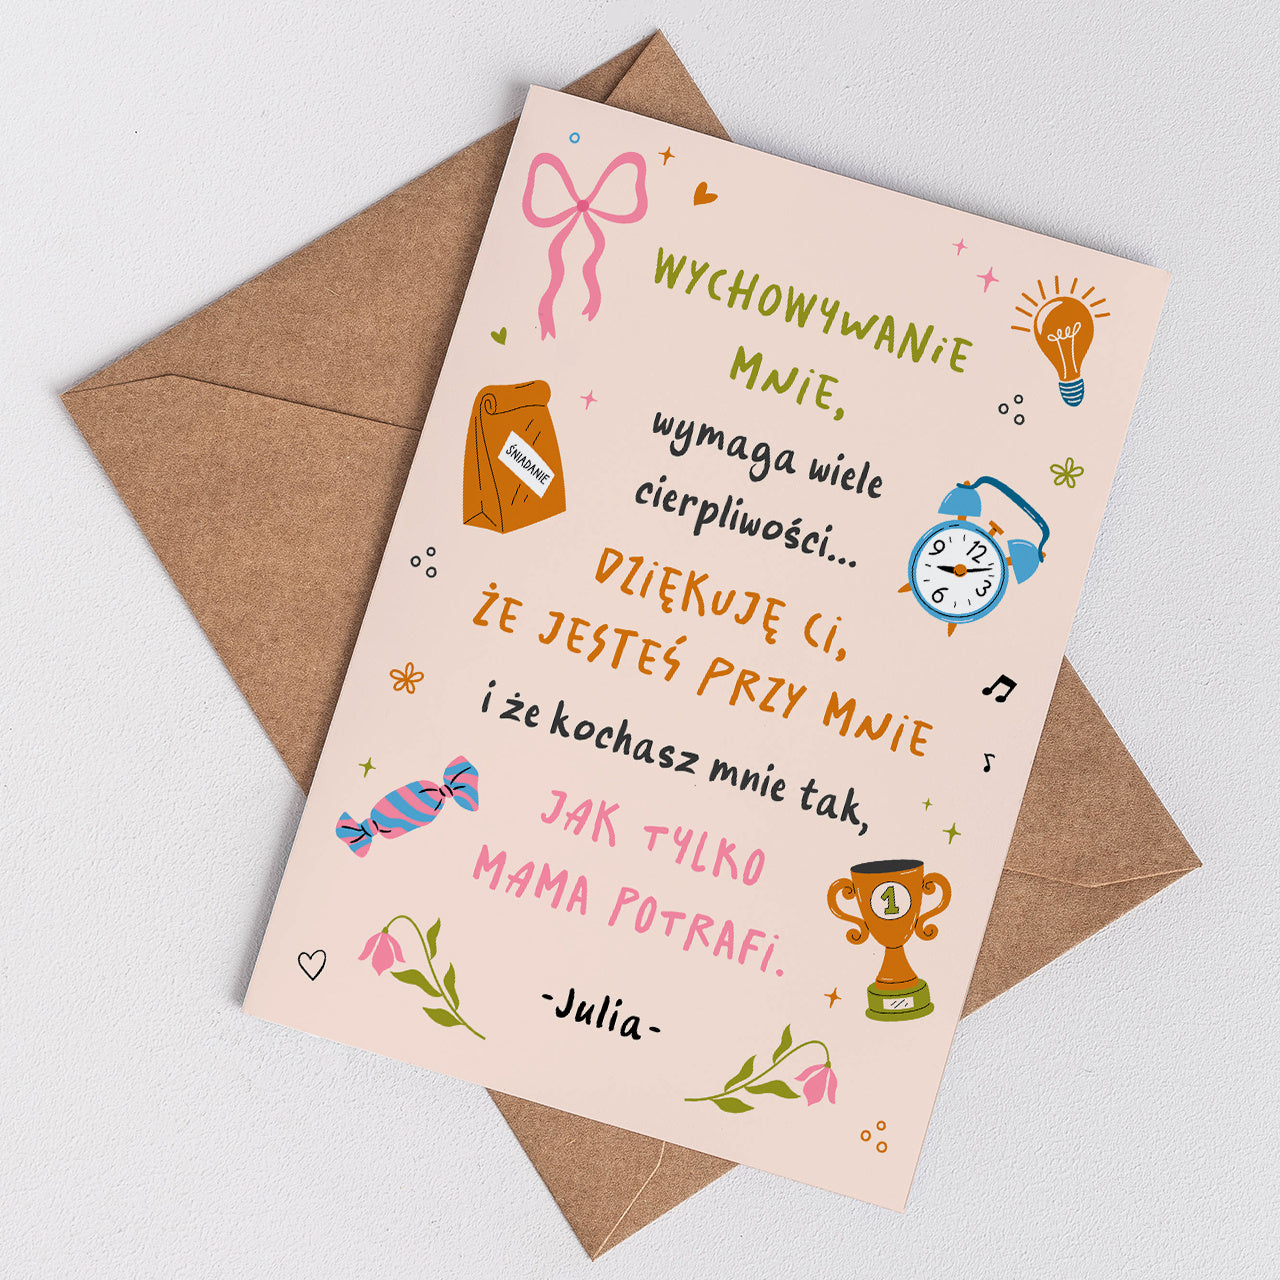 WYCHOWYWANiE
MNiE,
wymaga wiele
cierpliwości...
DZiĘKUJĘ Ci,
ŻE JESTEŚ PRZY MNiE
i że kochasz mnie tak,
JAK TYLKO
MAMA POTRAFi.
-Julia-
ŚNIADANIE
12
9
3
6
1